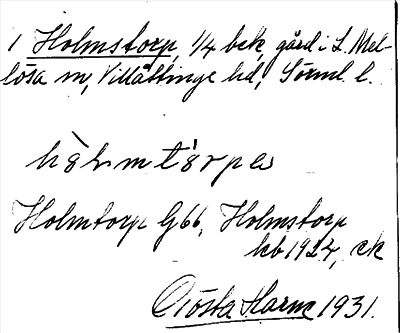 1 Holmstorp, 1/4 bek, gård i L. Mel-
lösa sn, Villåttinge hd, Sörml. l.
hòlmtòrpeɷ
Holmtorp G66, Holmstorp
kb 1924, ek
Gösta Harne 1931.